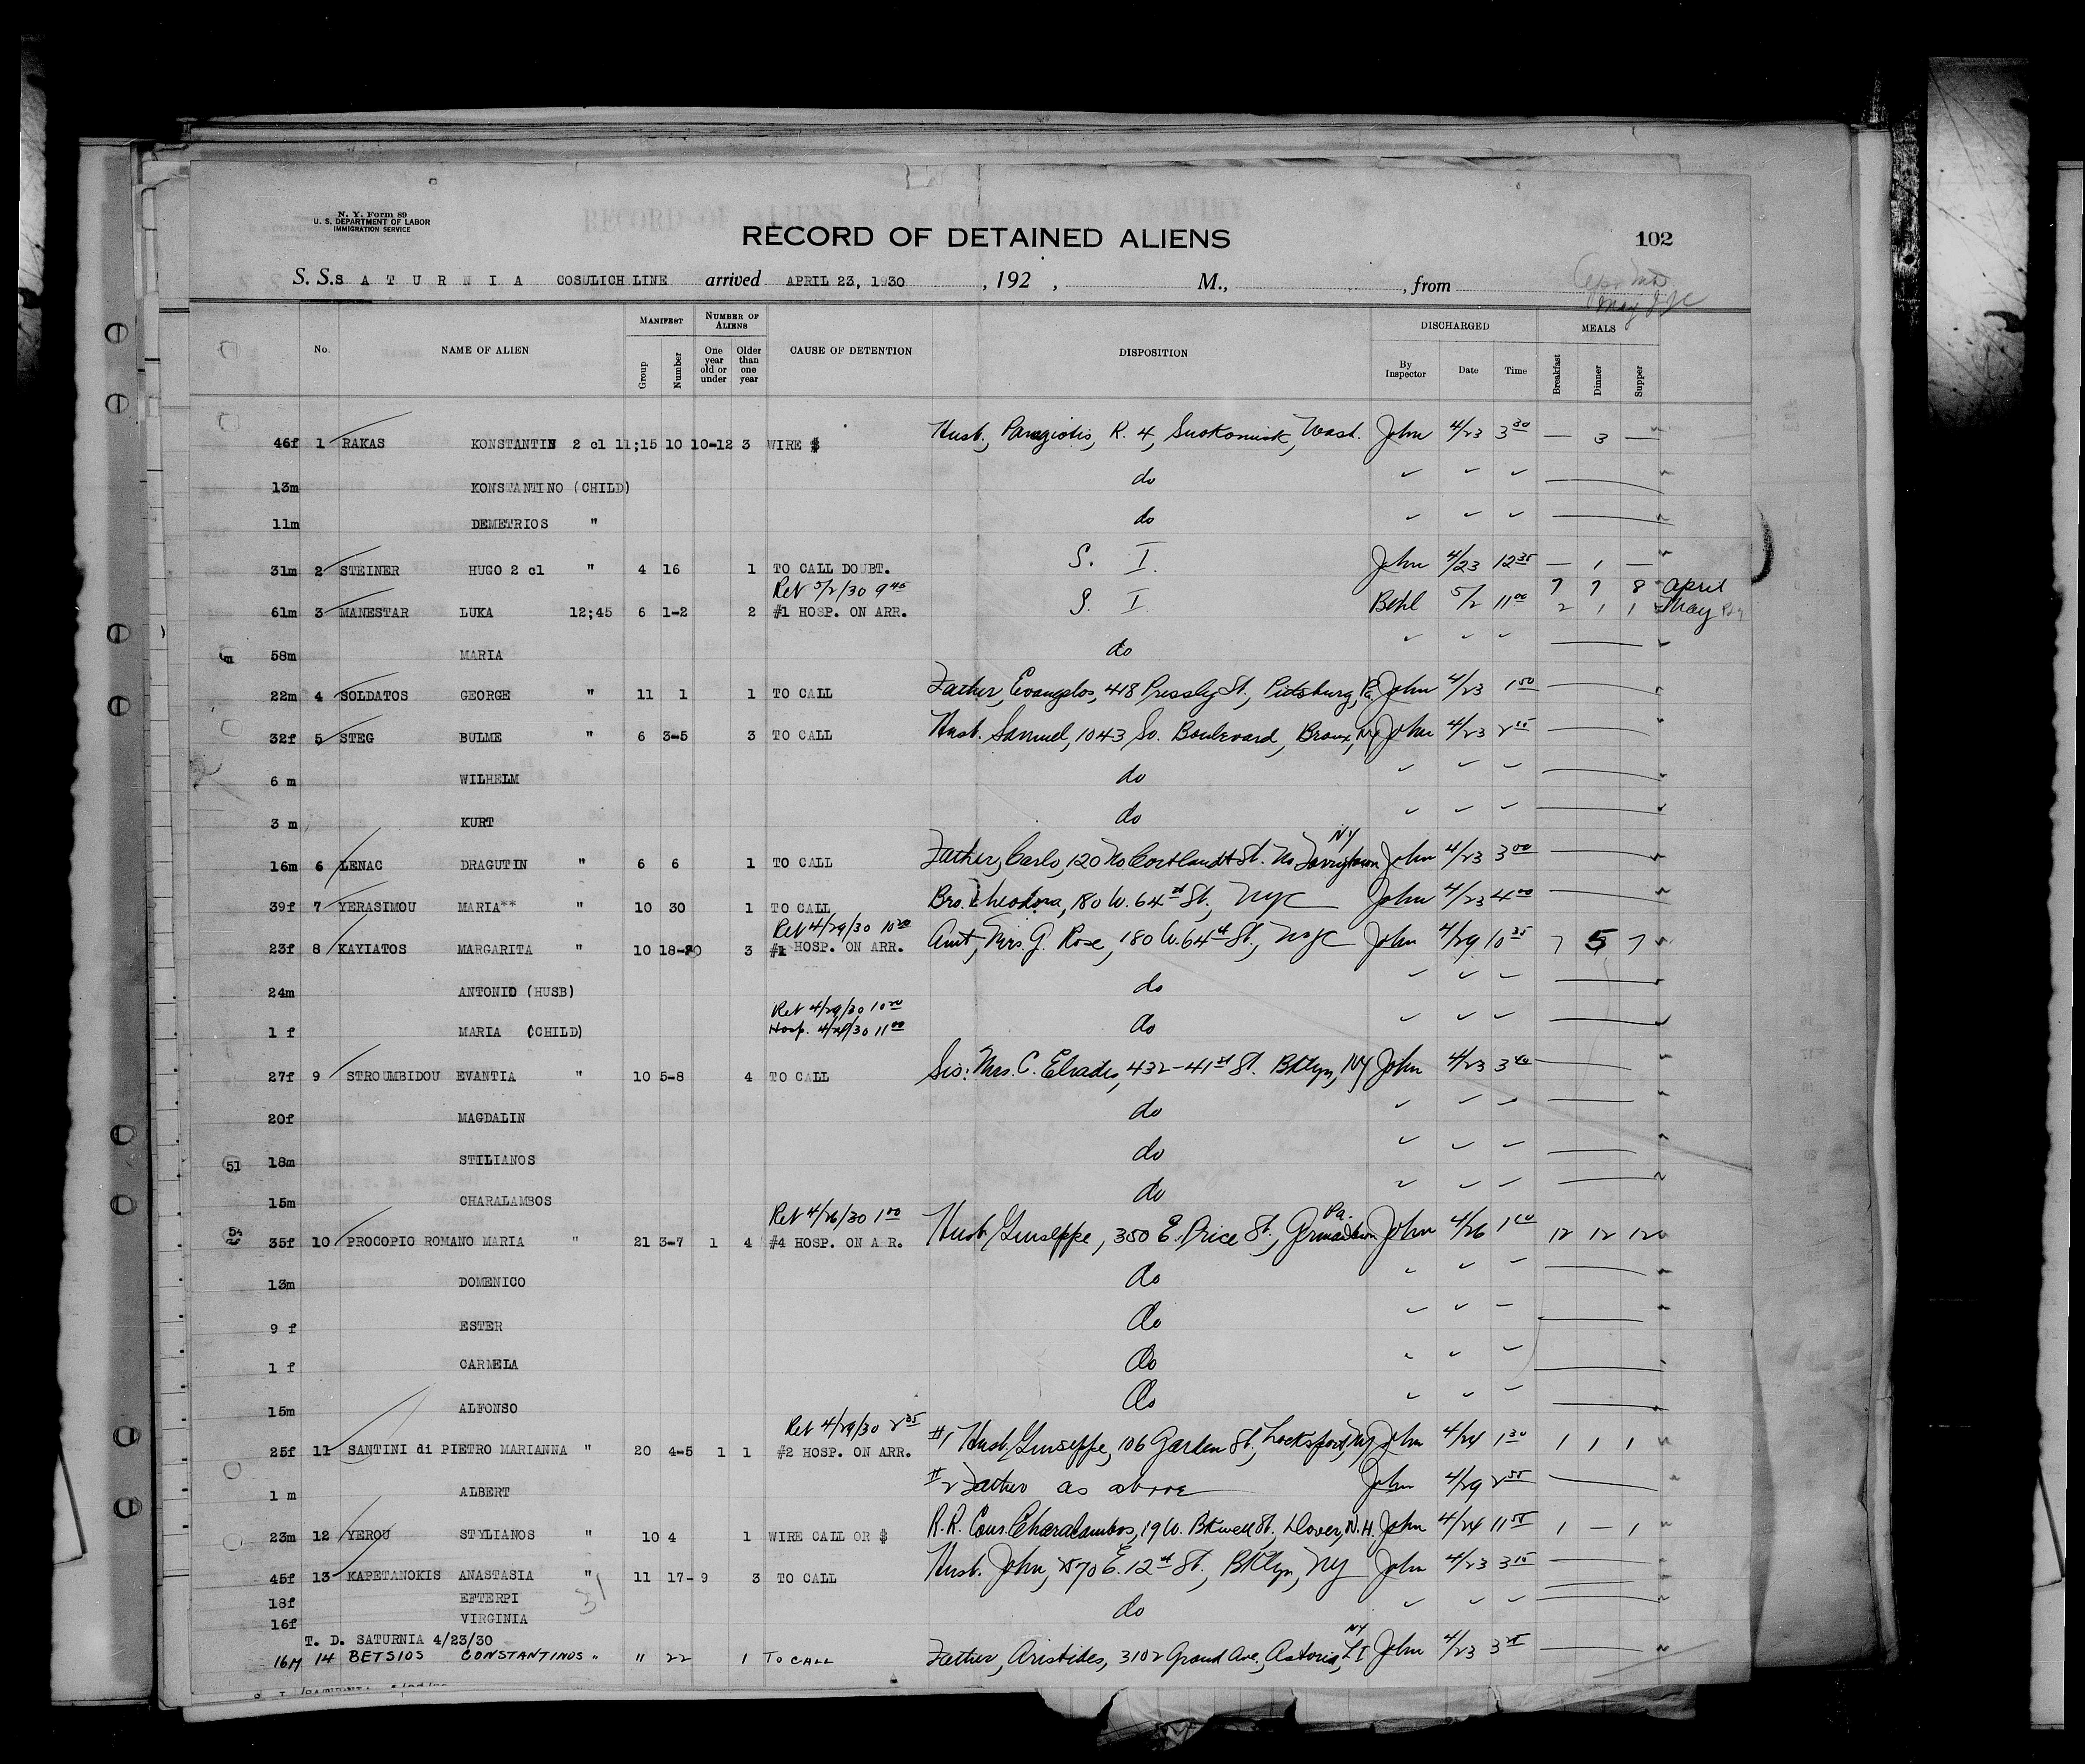 N. Y. Form 89
U. S. DEPARTMENT OF LABOR
IMMIGRATION SERVICE
RECORD OF DETAINED ALIENS
102
S. S. S A T U R N I A COSULICH LINE arrived APRIL 23, 1930 , 192 , M., , from
No. NAME OF ALIEN MANIFEST Group Number NUMBER OF ALIENS One year old or under Older than one year CAUSE OF DETENTION DISPOSITION DISCHARGED By Inspector Date Time MEALS Breakfast Dinner Supper
46f 1 RAKAS KONSTANTIN 2 cl 11;15 10 10-12 3 WIRE $ Husb., Panagiotis, R. 4, Wash. John 4/23 3 30 — 3 —
13m KONSTANTINO (CHILD) do
11m DEMETRIOS " do
31m 2 STEINER HUGO 2 cl " 4 16 1 TO CALL DOUBT. S. I. John 4/23 12 35 — 1 —
Ret 5/2/30 9 45 7 7 8 April
61m 3 MANESTAR LUKA 12;45 6 1-2 2 #1 HOSP. ON ARR. S. I. 5/2 11 00 2 1 1 May
58m MARIA do
22m 4 SOLDATOS GEORGE " 11 1 1 TO CALL Father, Evangelos, 418 Pressley St., Pittsburg, Pa John 4/23 1 50
32f 5 STEG BULME " 6 3-5 3 TO CALL Husb. Samuel, 1043 So. Boulevard, Bronx, NY John 4/23 2 15
6 m WILHELM do
3 m KURT do
16m 6 LENAC DRAGUTIN " 6 6 1 TO CALL Father, Carlo, 120 No Cortlandt St. No Tarrytown NY John 4/23 3 00
39f 7 YERASIMOU MARIA** " 10 30 1 TO CALL Bro. Theodora, 180 W. 64th St., NYC John 4/23 4 00
Ret 4/29/30 10 20
23f 8 KAYIATOS MARGARITA " 10 18-20 3 #1 HOSP. ON ARR. Aunt, Mrs. G. Rose, 180 W. 64th St., NYC John 4/29 10 35 7 5 7
24m ANTONIO (HUSB) do
Ret 4/29/30 10 20
1 f MARIA (CHILD) Hosp. 4/24/30 11 00 do
27f 9 STROUMBIDOU EVANTIA " 10 5-8 4 TO CALL Sis. Mrs. C. Elrades, 432-41st St. Bklyn, NY John 4/23 3 40
20f MAGDALIN do
51 18m STILIANOS do
15m CHARALAMBOS do
Ret 4/26/30 1 00
54 35f 10 PROCOPIO ROMANO MARIA " 21 3-7 1 4 #4 HOSP. ON A R. Husb. Giuseppe, 350 E. Price St., Germantown Pa. John 4/26 1 10 12 12 12
13m DOMENICO do
9 f ESTER do
1 f CARMELA do
15m ALFONSO do
Ret 4/29/30 2 35
25f 11 SANTINI di PIETRO MARIANNA " 20 4-5 1 1 #2 HOSP. ON ARR. #1 Husb. Giuseppe, 106 Garden St., Lockport, NY John 4/24 1 30 1 1 1
1 m ALBERT #2 Father as above John 4/29 2 55
23m 12 YEROU STYLIANOS " 10 4 1 WIRE CALL OR $ R.R. Cous. Charalambos, 19 W. St., Dover, N.H. John 4/24 11 55 1 — 1
45f 13 KAPETANOKIS ANASTASIA " 11 17-9 3 TO CALL Husb. John, E. 12th St., Bklyn, NY John 4/23 3 15
18f EFTERPI
16f VIRGINIA do
31
T. D. SATURNIA 4/23/30
16M 14 BETSIOS CONSTANTINOS " " 22 1 TO CALL Father, Aristides, 3102 Grand Ave., Astoria, LI NY John 4/23